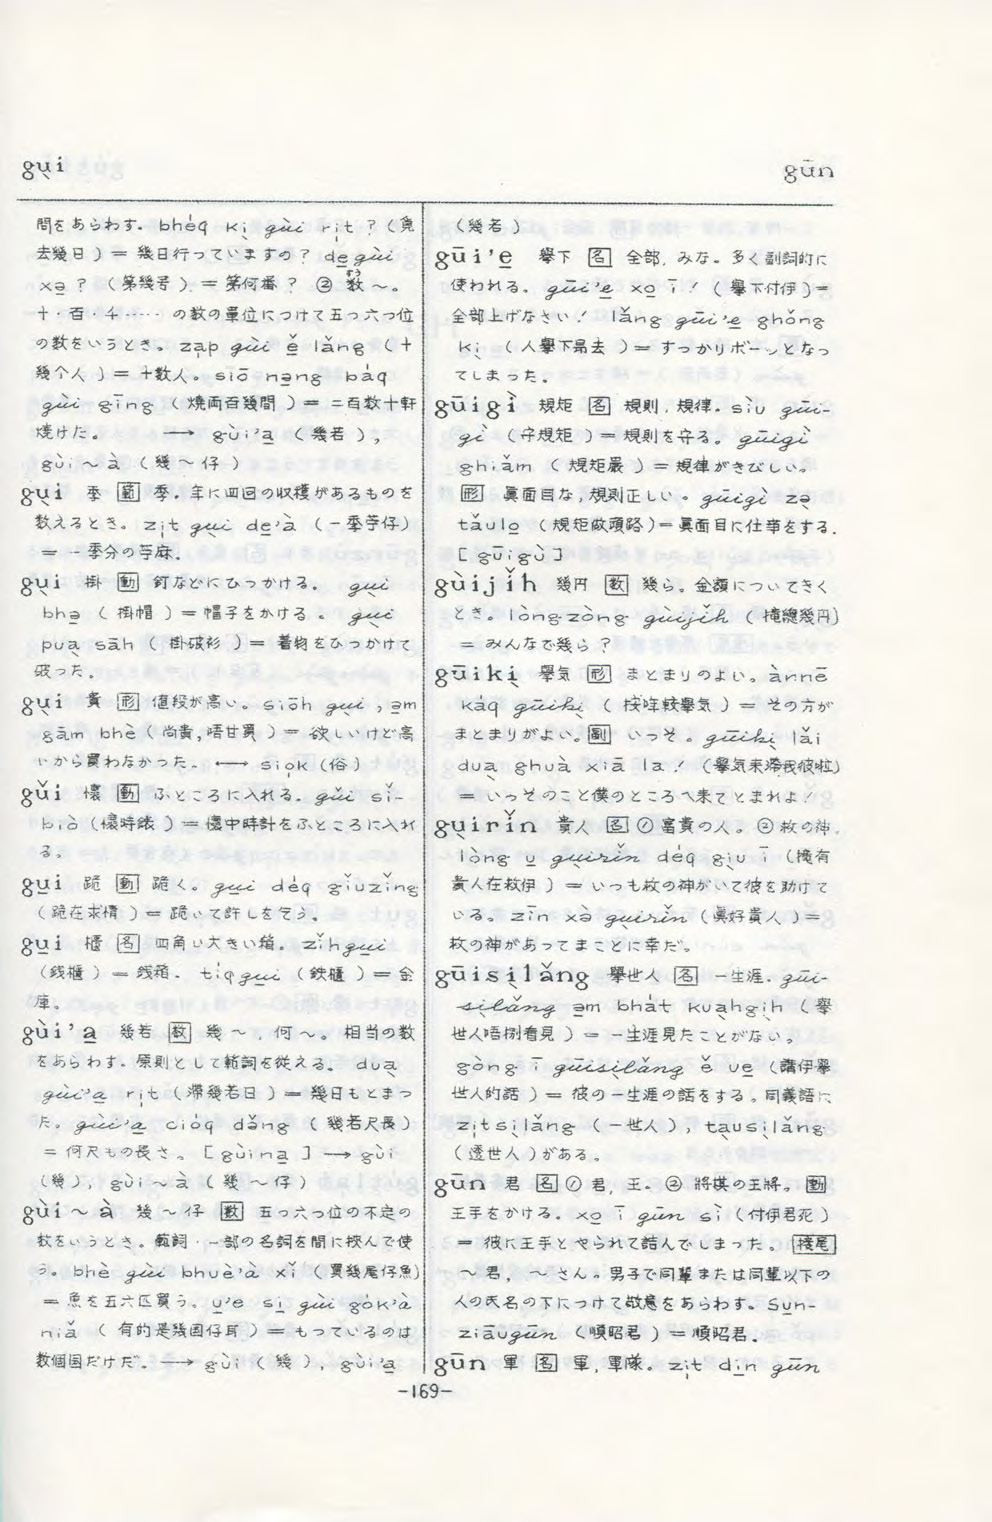 gu̖i
gūn
問をあらわす。bhéq ki̖ gùi ri̍t ? (覓
去幾日) = 幾日行っていますの? de̱ gùi
xə̱ ? (第幾号) = 第何番? ② 数 ~。
すう
十・百・千…… の数の單位につけて五つ六つ位
の数をいうとき。za̍p gùi ě lǎng (十
幾个人) = 十数人。siō nə̱ng báq
gùi gīng (焼両百幾間) = 二百数十軒
焼けた。 ⟶ gùi'a̱ (幾若),
gùi ~ à (幾~仔)
gu̖i 季 [範] 季。年に四回の収穫があるものを
数えるとき。zi̍t gu̖i de̱'à (一季苧仔)
= 一季分の苧麻。
gu̖i 掛 [動] 釘などにひっかける。 gu̖i
bhə̱ (掛帽) = 帽子をかける。gu̖i
pua̖ sāh (掛破衫) = 着物をひっかけて
破った。
gu̖i 貴 [形] 値段が高い。siōh gu̖i, ə̱m
gǎm bhè (尚貴,唔甘買) = 欲しいけど高
いから買わなかった。⟷ sio̍k (俗)
gǔi 懷 [動] ふところに入れる。gǔi sǐ-
biò (懷時錶) = 懷中時計をふところに入れ
る。
gu̱i 跪 [動] 跪く。gu̱i déq gǐuzǐng
(跪在求情) = 跪いて許しを乞う。
gu̱i 櫃 [名] 四角い大きい箱。zǐhgu̱i
(銭櫃) = 銭箱。tíqgu̱i (鉄櫃) = 金
庫。
gùi'a̱ 幾若 [数] 幾~,何~。相当の数
をあらわす。原則として範詞を從える。dua̖
gùi'a̱ ri̍t (滞幾若日) = 幾日もとまっ
た。gùi'a̱ cióq dǎng (幾若尺長)
= 何尺もの長さ。[gùina̱] ⟶ gùi
(幾),gùi~à (幾~仔)
gùi ~ à 幾~仔 [数] 五つ六つ位の不定の
数をいうとき。範詞・一部の名詞を間に挾んで使
う。bhè gùi bhuè'à xǐ (買幾尾仔魚)
= 魚を五六匹買う。u̱'e si̱ gùi gók'à
niā (有的是幾国仔耳) = もっているのは
数個国だけだ。⟶ gùi (幾),gùi'a̱
(幾若)
gūi'e̱ 擧下 [名] 全部,みな。多く副詞的に
使われる。gūi'e̱ xo̖ ī ! (擧下付伊) =
全部上げなさい! lǎng gūi'e̱ ghǒng
ki̖ (人擧下昂去) = すっかりボーッとなっ
てしまった。
gūigì 規矩 [名] 規則,規律。siù gūi-
gì (守規矩) = 規則を守る。gūigì
ghiǎm (規矩嚴) = 規律がきびしい。
[形] 眞面目な,規則正しい。gūigì zə̖
tǎulo̱ (規矩做頭路) = 眞面目に仕事をする。
[gūigù]
gùijǐh 幾円 [数] 幾ら。金額についてきく
とき。lòng-zòng gùijǐh (攏總幾円)
= みんなで幾ら?
gūiki̖ 擧気 [形] まとまりのよい。ànnē
káq gūiki̖ (按哖較擧気) = その方が
まとまりがよい。[副] いっそ。gūiki̖ lǎi
dua̖ ghuà xiā la ! (擧気来滞我彼啦)
= いっそのこと僕のところへ来てとまれよ!
gu̖irǐn 貴人 [名] ① 富貴の人。② 救の神。
lòng u̱ gu̖irǐn déq giu̖ ī (攏有
貴人在救伊) = いつも救の神がいて彼を助けて
いる。zīn xə̀ gu̖irǐn (眞好貴人) =
救の神があってまことに幸だ。
gūisi̖lǎng 擧世人 [名] 一生涯。gūi-
si̖lǎng ə̱m bhát kua̖hgi̖h (擧
世人唔捌看見) = 一生涯見たことがない。
gòng ī gūisi̖lǎng ě ue̱ (講伊擧
世人的話) = 彼の一生涯の話をする。同義語に
zi̍tsi̖lǎng (一世人),ta̖usi̖lǎng
(透世人)がある。
gūn 君 [名] ① 君,王。② 將棋の王將。[動]
王手をかける。xo̖ ī gūn sì (付伊君死)
= 彼に王手とやられて詰んでしまった。[接尾]
~君,~さん。男子で同輩または同輩以下の
人の氏名の下につけて敬意をあらわす。Su̱n-
ziāugūn (順昭君) = 順昭君。
gūn 軍 [名] 軍,軍隊。zi̍t di̱n gūn
-169-